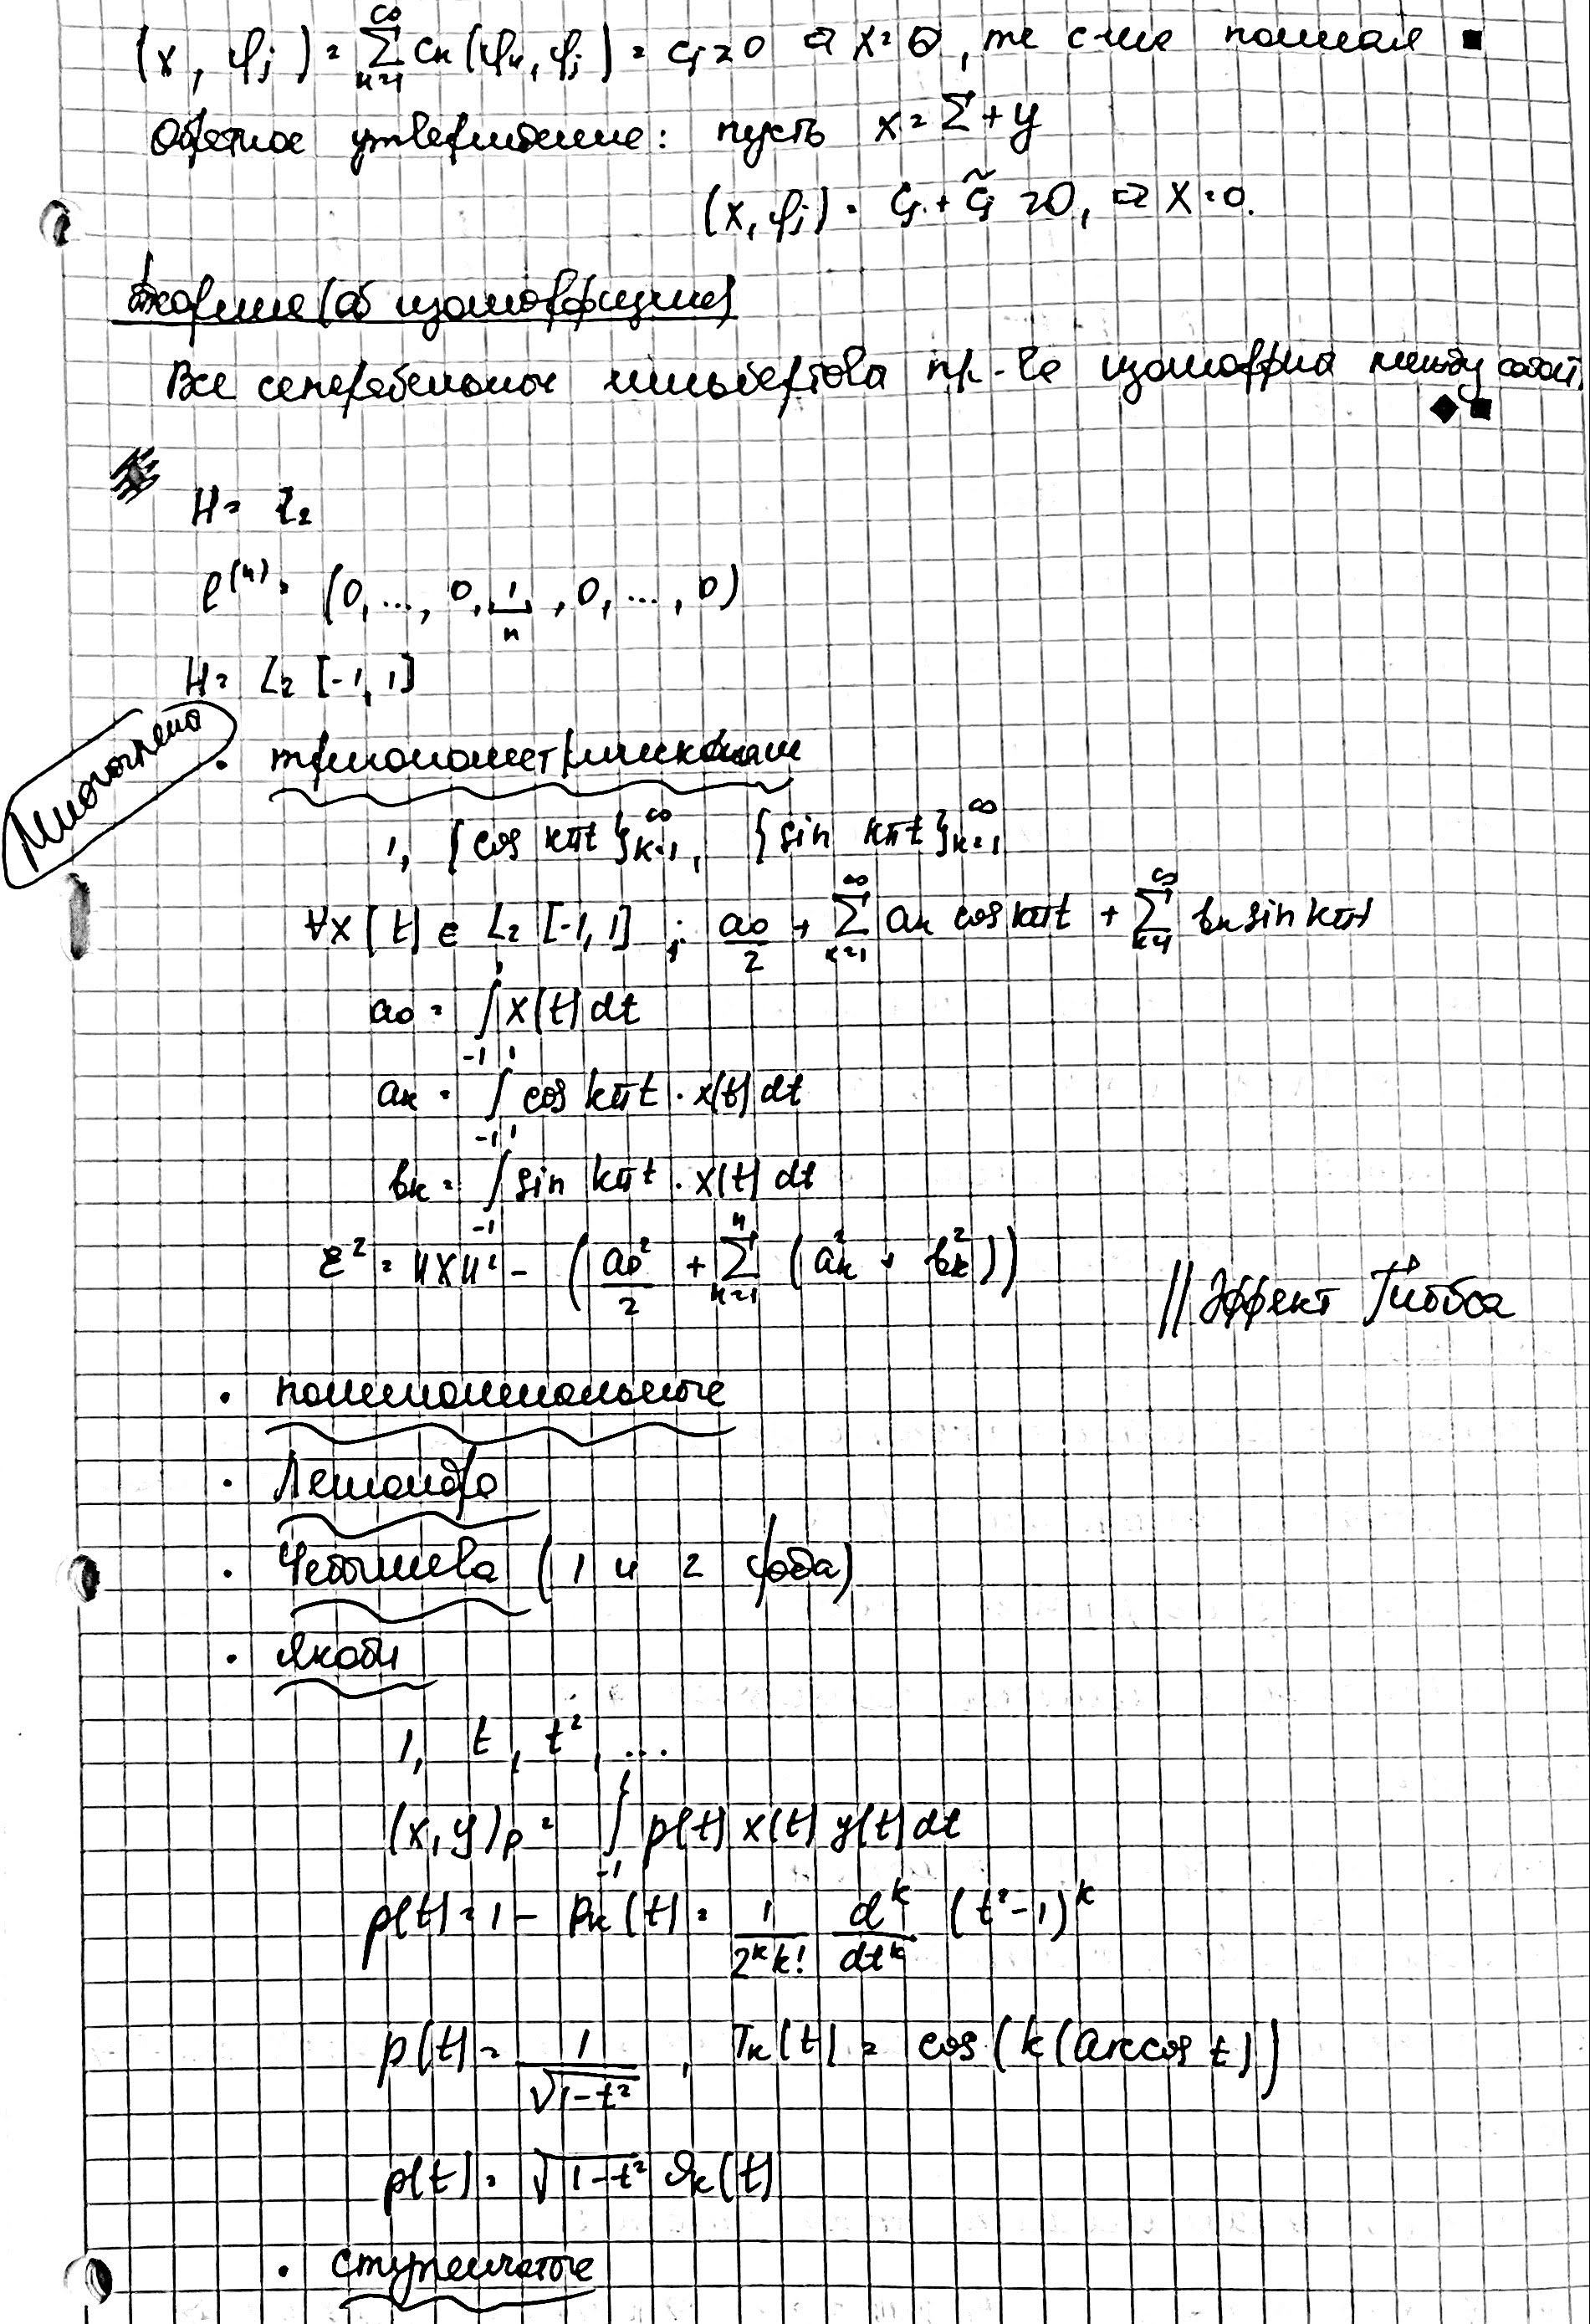 (x, φj) = ∑_{k=1}^{∞} cк(φк, φj) = cj = 0 ⇒ x = θ, те с-ма полная ■
Обратное утверждение: пусть x = ∑ + y
(x, φj) = cj + c̃j = 0, ⇒ x = 0.
Теорема (об изоморфизме)
Все сепарабельные гильбертовы пр-ва изоморфны между собой
◆ ■
H = ℓ₂
e⁽ⁿ⁾ = (0, ..., 0, 1, 0, ..., 0)
n
H = L₂ [-1, 1]
Многочлены
· тригонометрические
1, {cos kπt}_{k=1}^{∞}, {sin kπt}_{k=1}^{∞}
∀x(t) ∈ L₂ [-1, 1] ; a₀/2 + ∑_{k=1}^{∞} aк cos kπt + ∑_{k=1}^{∞} bк sin kπt
a₀ = ∫_{-1}^{1} x(t) dt
aк = ∫_{-1}^{1} cos kπt · x(t) dt
bк = ∫_{-1}^{1} sin kπt · x(t) dt
ε² = ||x||² - (a₀²/2 + ∑_{k=1}^{n} (aк² + bк²))
// Эффект Гиббса
· полиномиальные
· Лежандра
· Чебышева (1 и 2 рода)
· Якоби
1, t, t², ...
(x, y)ₚ = ∫_{-1}^{1} p(t) x(t) y(t) dt
p(t) = 1 - Pк(t) = 1/(2ᵏ k!) dᵏ/dtᵏ (t² - 1)ᵏ
p(t) = 1/√(1-t²), Tк(t) = cos(k(arccos t))
p(t) = √(1-t²) Якк(t)
· ступенчатые